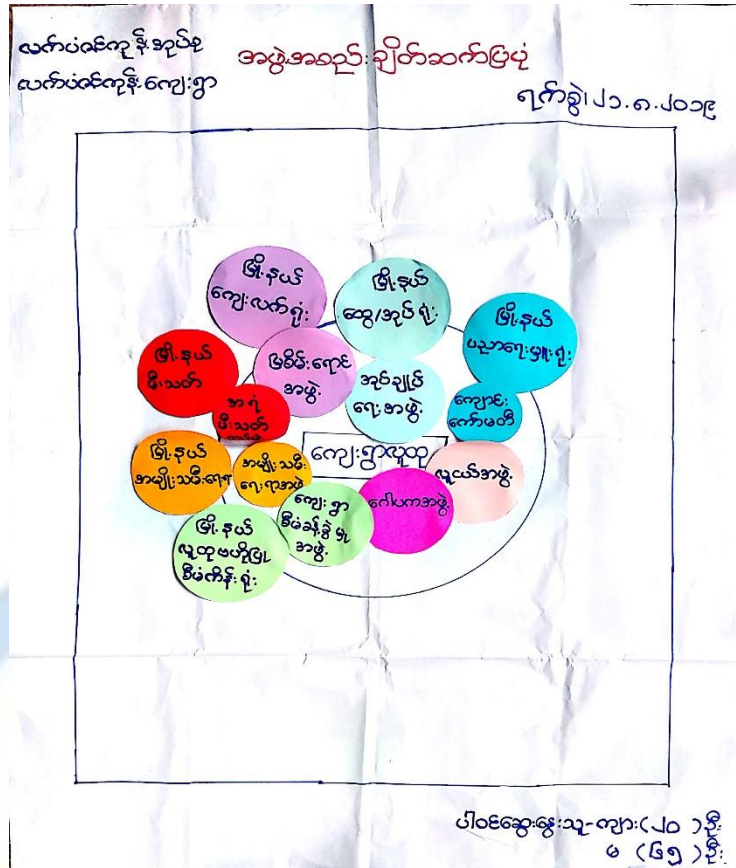 လက်ပံဝင်ကုန်းအုပ်စု
လက်ပံဝင်ကုန်းကျေးရွာ
အဖွဲ့အစည်းချိတ်ဆက်ပြပုံ
ရက်စွဲ၊ ၂၁.၈.၂၀၁၉
မြို့နယ်
ကျေးလက်ရုံး
မြို့နယ်
ထွေ/အုပ်ရုံး
မြို့နယ်
ပညာရေးမှူးရုံး
မြို့နယ်
မီးသတ်
မြစိမ်းရောင်
အဖွဲ့
အုပ်ချုပ်
ရေးအဖွဲ့
ကျောင်း
ကော်မတီ
အရံ
မီးသတ်
ကျေးရွာလူထု
မြို့နယ်
အမျိုးသမီးရေးရာ
အမျိုးသမီး
ရေးရာအဖွဲ့
လူငယ်အဖွဲ့
ဂေါပကအဖွဲ့
ကျေးရွာ
စီမံခန့်ခွဲမှု
အဖွဲ့
မြို့နယ်
လူထုဗဟိုပြု
စီမံကိန်းရုံး
ပါဝင်ဆွေးနွေးသူ-ကျား(၂၀)ဦး
မ (၆၅)ဦး